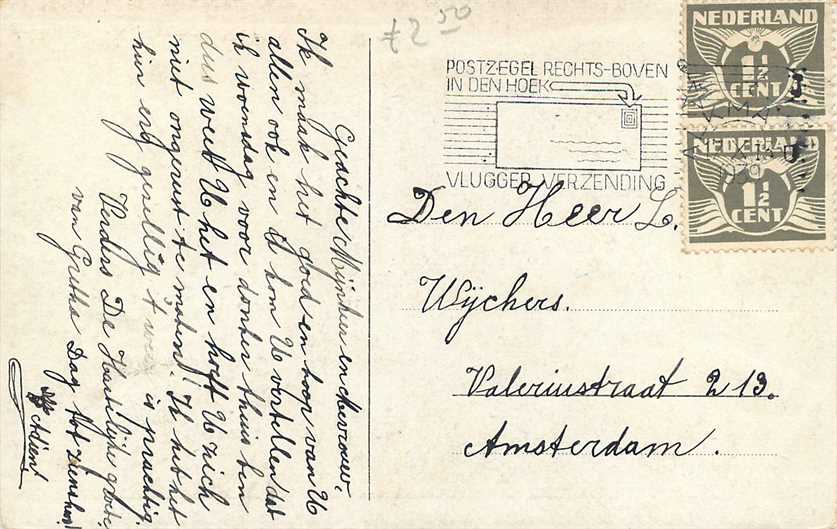 Geachte Mijnheer en Mevrouw,
Ik maak het goed en hoor van U
allen ook en ik kom U vertellen dat
ik woensdag voor donker thuis ben
dus weet U het en hoeft U zich
niet ongerust te maken! Ik heb het
hier erg gezellig & weer is prachtig.
Verders De Hartelijke groete
van Gretha Dag tot ziens hoor!
Adieu!
£2 50
POSTZEGEL RECHTS-BOVEN
IN DEN HOEK
VLUGGER VERZENDING
ALKMAAR
1939
NEDERLAND
1½
CENT
NEDERLAND
1½
CENT
Den Heer L.
Wijchers.
Valeriusstraat 213.
Amsterdam.